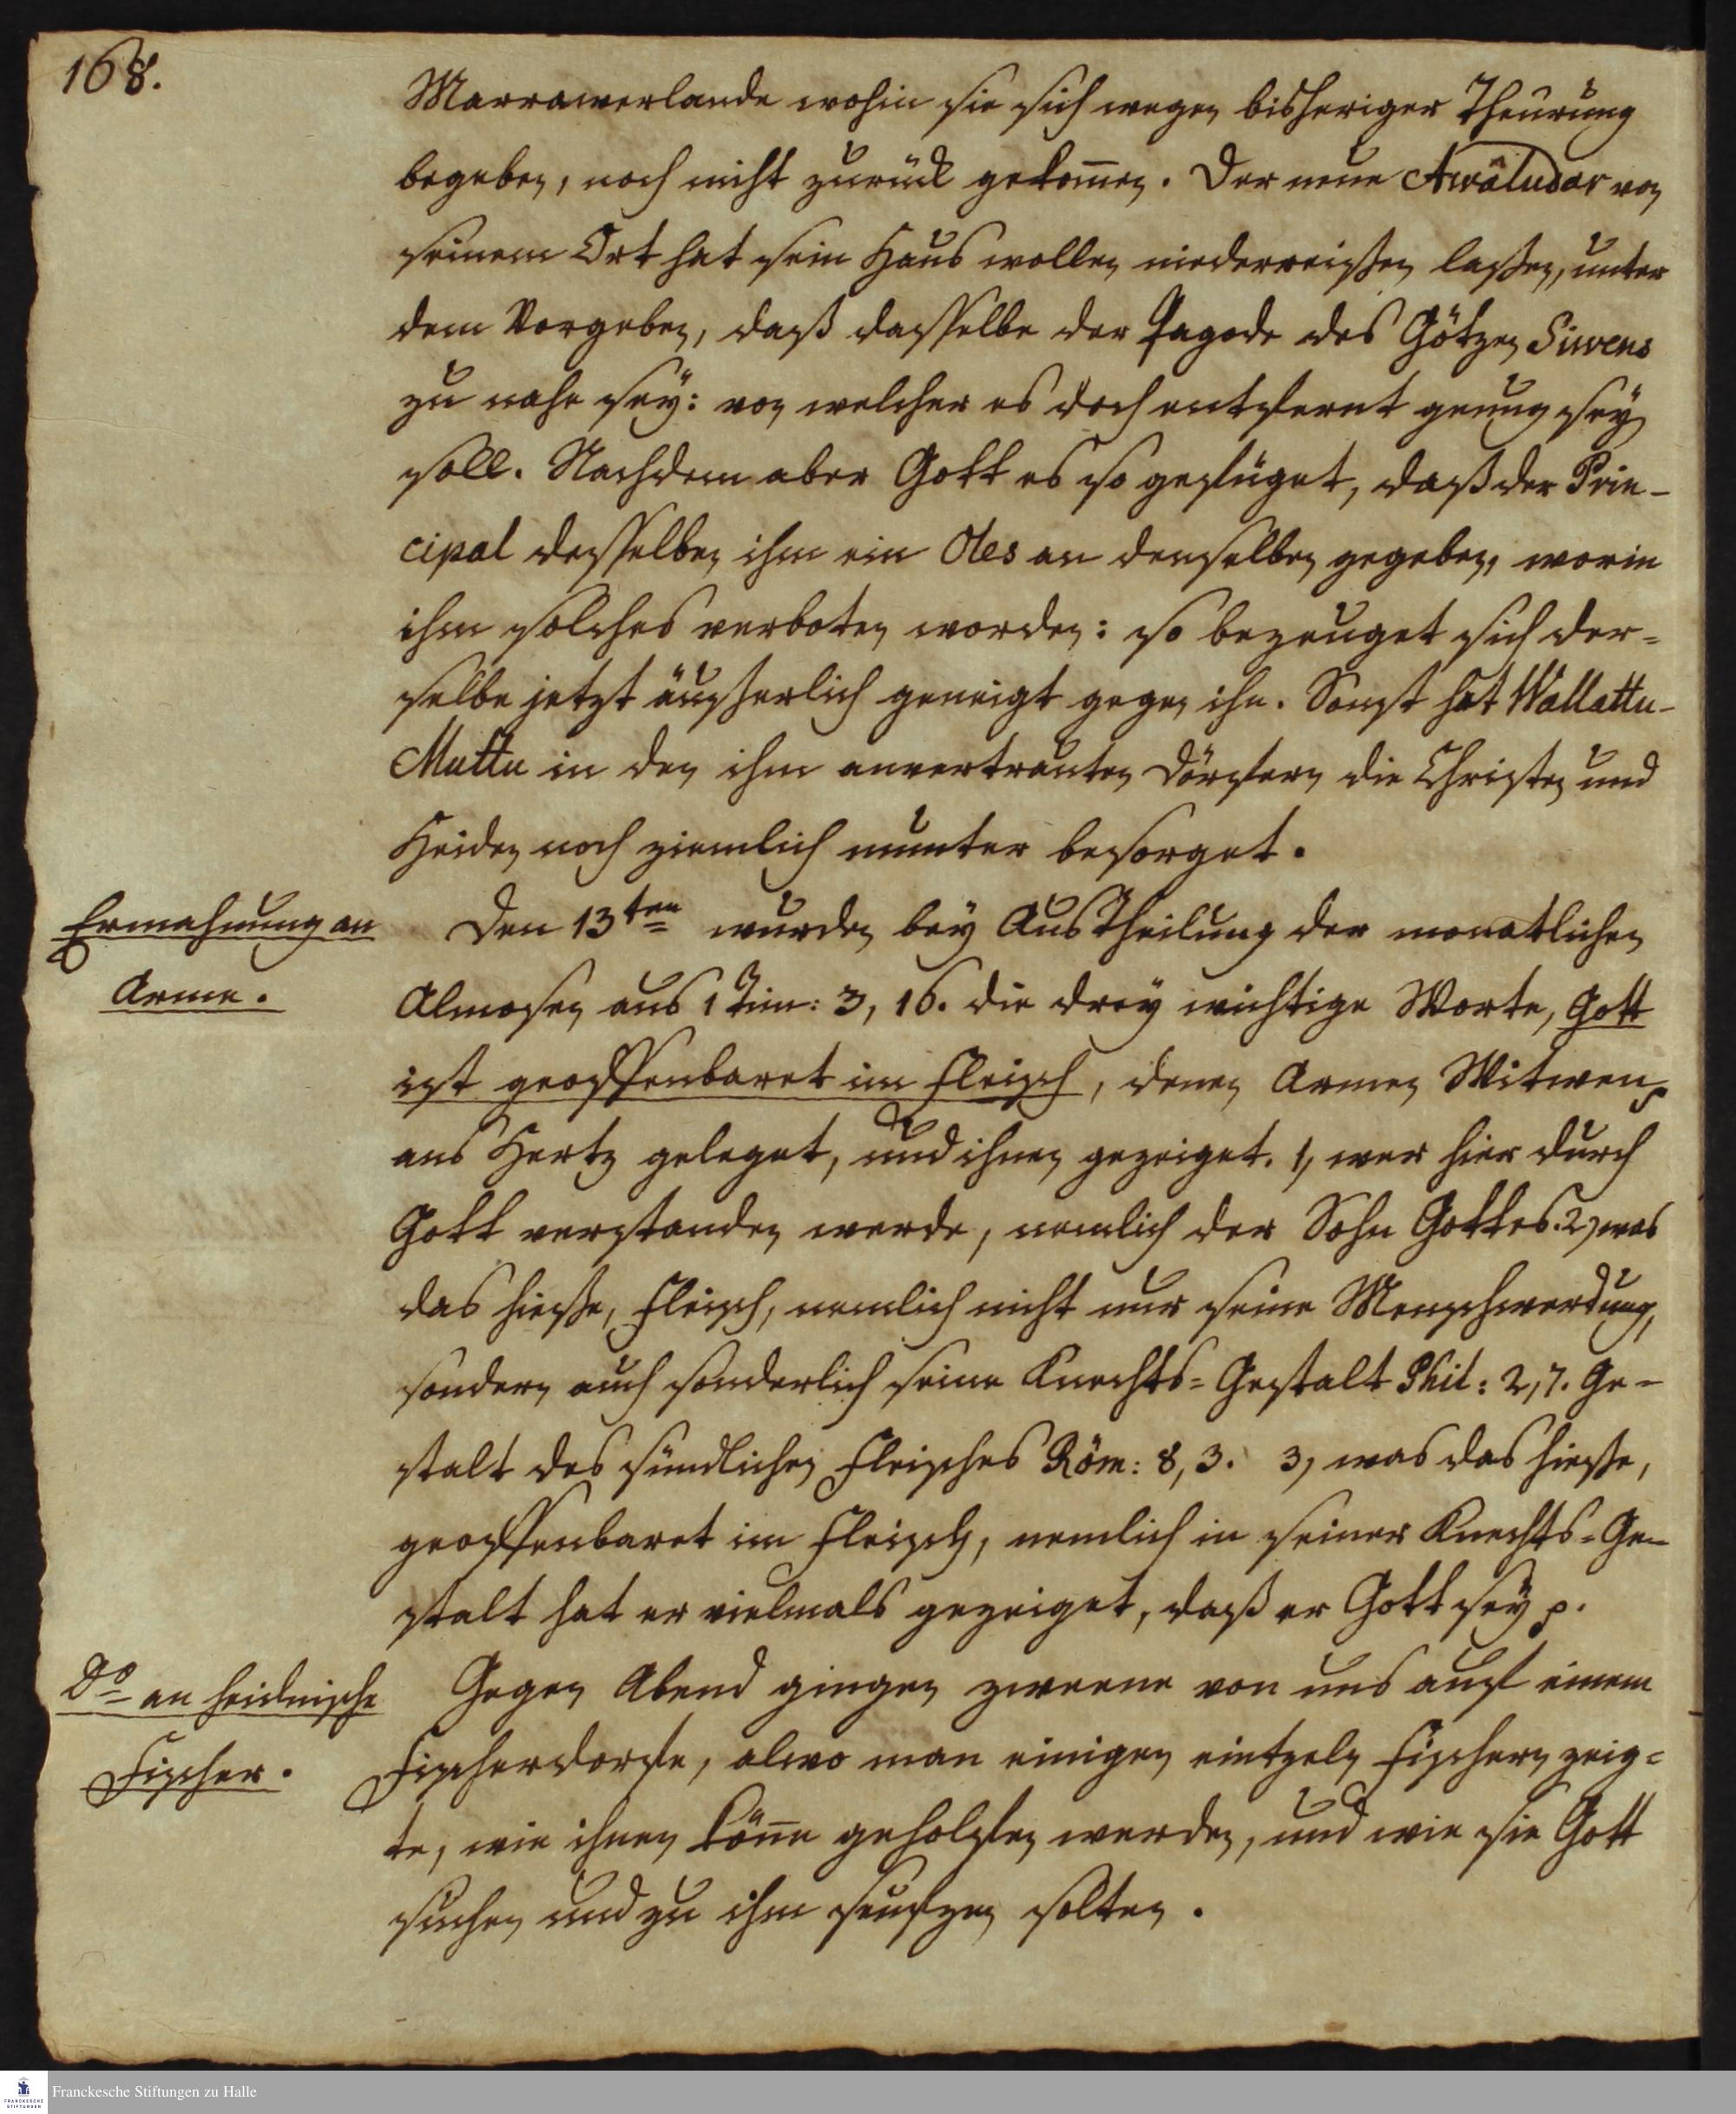 168.
Marrawerlande wohin sie sich wegen bisheriger Theurung
begeben, noch nicht zurück gekom̅en. Der neue Awâludar von
seinem Ort hat sein Haus wollen niederreißen laßen, unter
dem Vorgeben, daß dasselbe der Pagode des Götzen Siwens
zu nahe sey: von welcher es doch entfernt genug seyn
soll. Nachdem aber Gott es so gefüget, daß der Prin-
cipal desselben ihm ein Oles an denselben gegeben, worin
ihm solches verboten worden: so bezeuget sich der-
selbe jetzt äusserlich geneigt gegen ihn. Sonst hat Wallattu-
Muttu in den ihm anvertrauten Dörfern die Christen und
Heiden noch ziemlich munter besorget.
Ermahnung an
Arme.
Den 13ten wurden bey AusTheilung der monatlichen
Almosen aus 1 Tim: 3, 16. die drey wichtige Worte, Gott
ist geoffenbaret im Fleisch, denen Armen Witwen p
ans Hertz geleget, und ihnen gezeiget. 1, wer hier durch
Gott verstanden werde, nemlich der Sohn Gottes. 2, was
das hiesse, Fleisch, nemlich nicht nur seine Menschwerdung,
sondern auch sonderlich seine Knechts-Gestalt Phil: 2, 7. Ge-
stalt des sündlichen Fleisches Röm: 8, 3. 3, was das hiesse,
geoffenbaret im Fleisch, nemlich in seiner Knechts-Ge-
stalt hat er vielmals gezeiget, daß er Gott sey p.
Do an heidnische
Fischer.
Gegen Abend gingen zweene von uns auf einem
Fischerdorfe, alwo man einigen eintzeln Fischern zeig-
te, wie ihnen kön̅e geholfen werden, und wie sie Gott
suchen und zu ihm seufzen solten.
Franckesche Stiftungen zu Halle
FRANCKESCHE
STIFTUNGEN